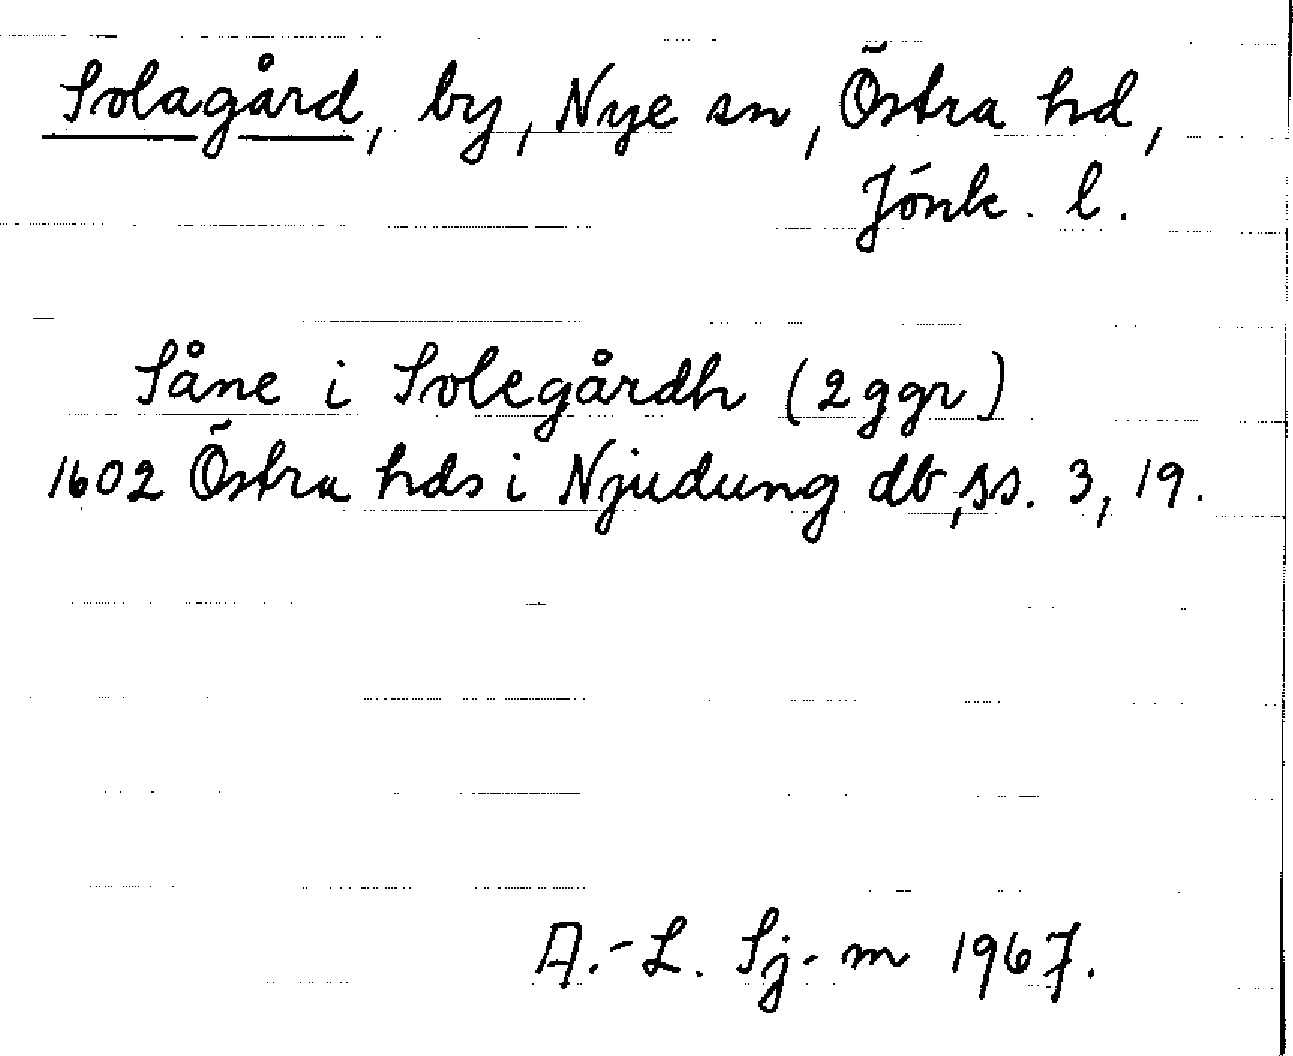 Solagård, by, Nye sn, Östra hd,
Jönk. l.
Såne i Solegårdh (2 ggr)
1602 Östra hds i Njudung db, ss. 3, 19.
A.-L. Sj-m 1967.